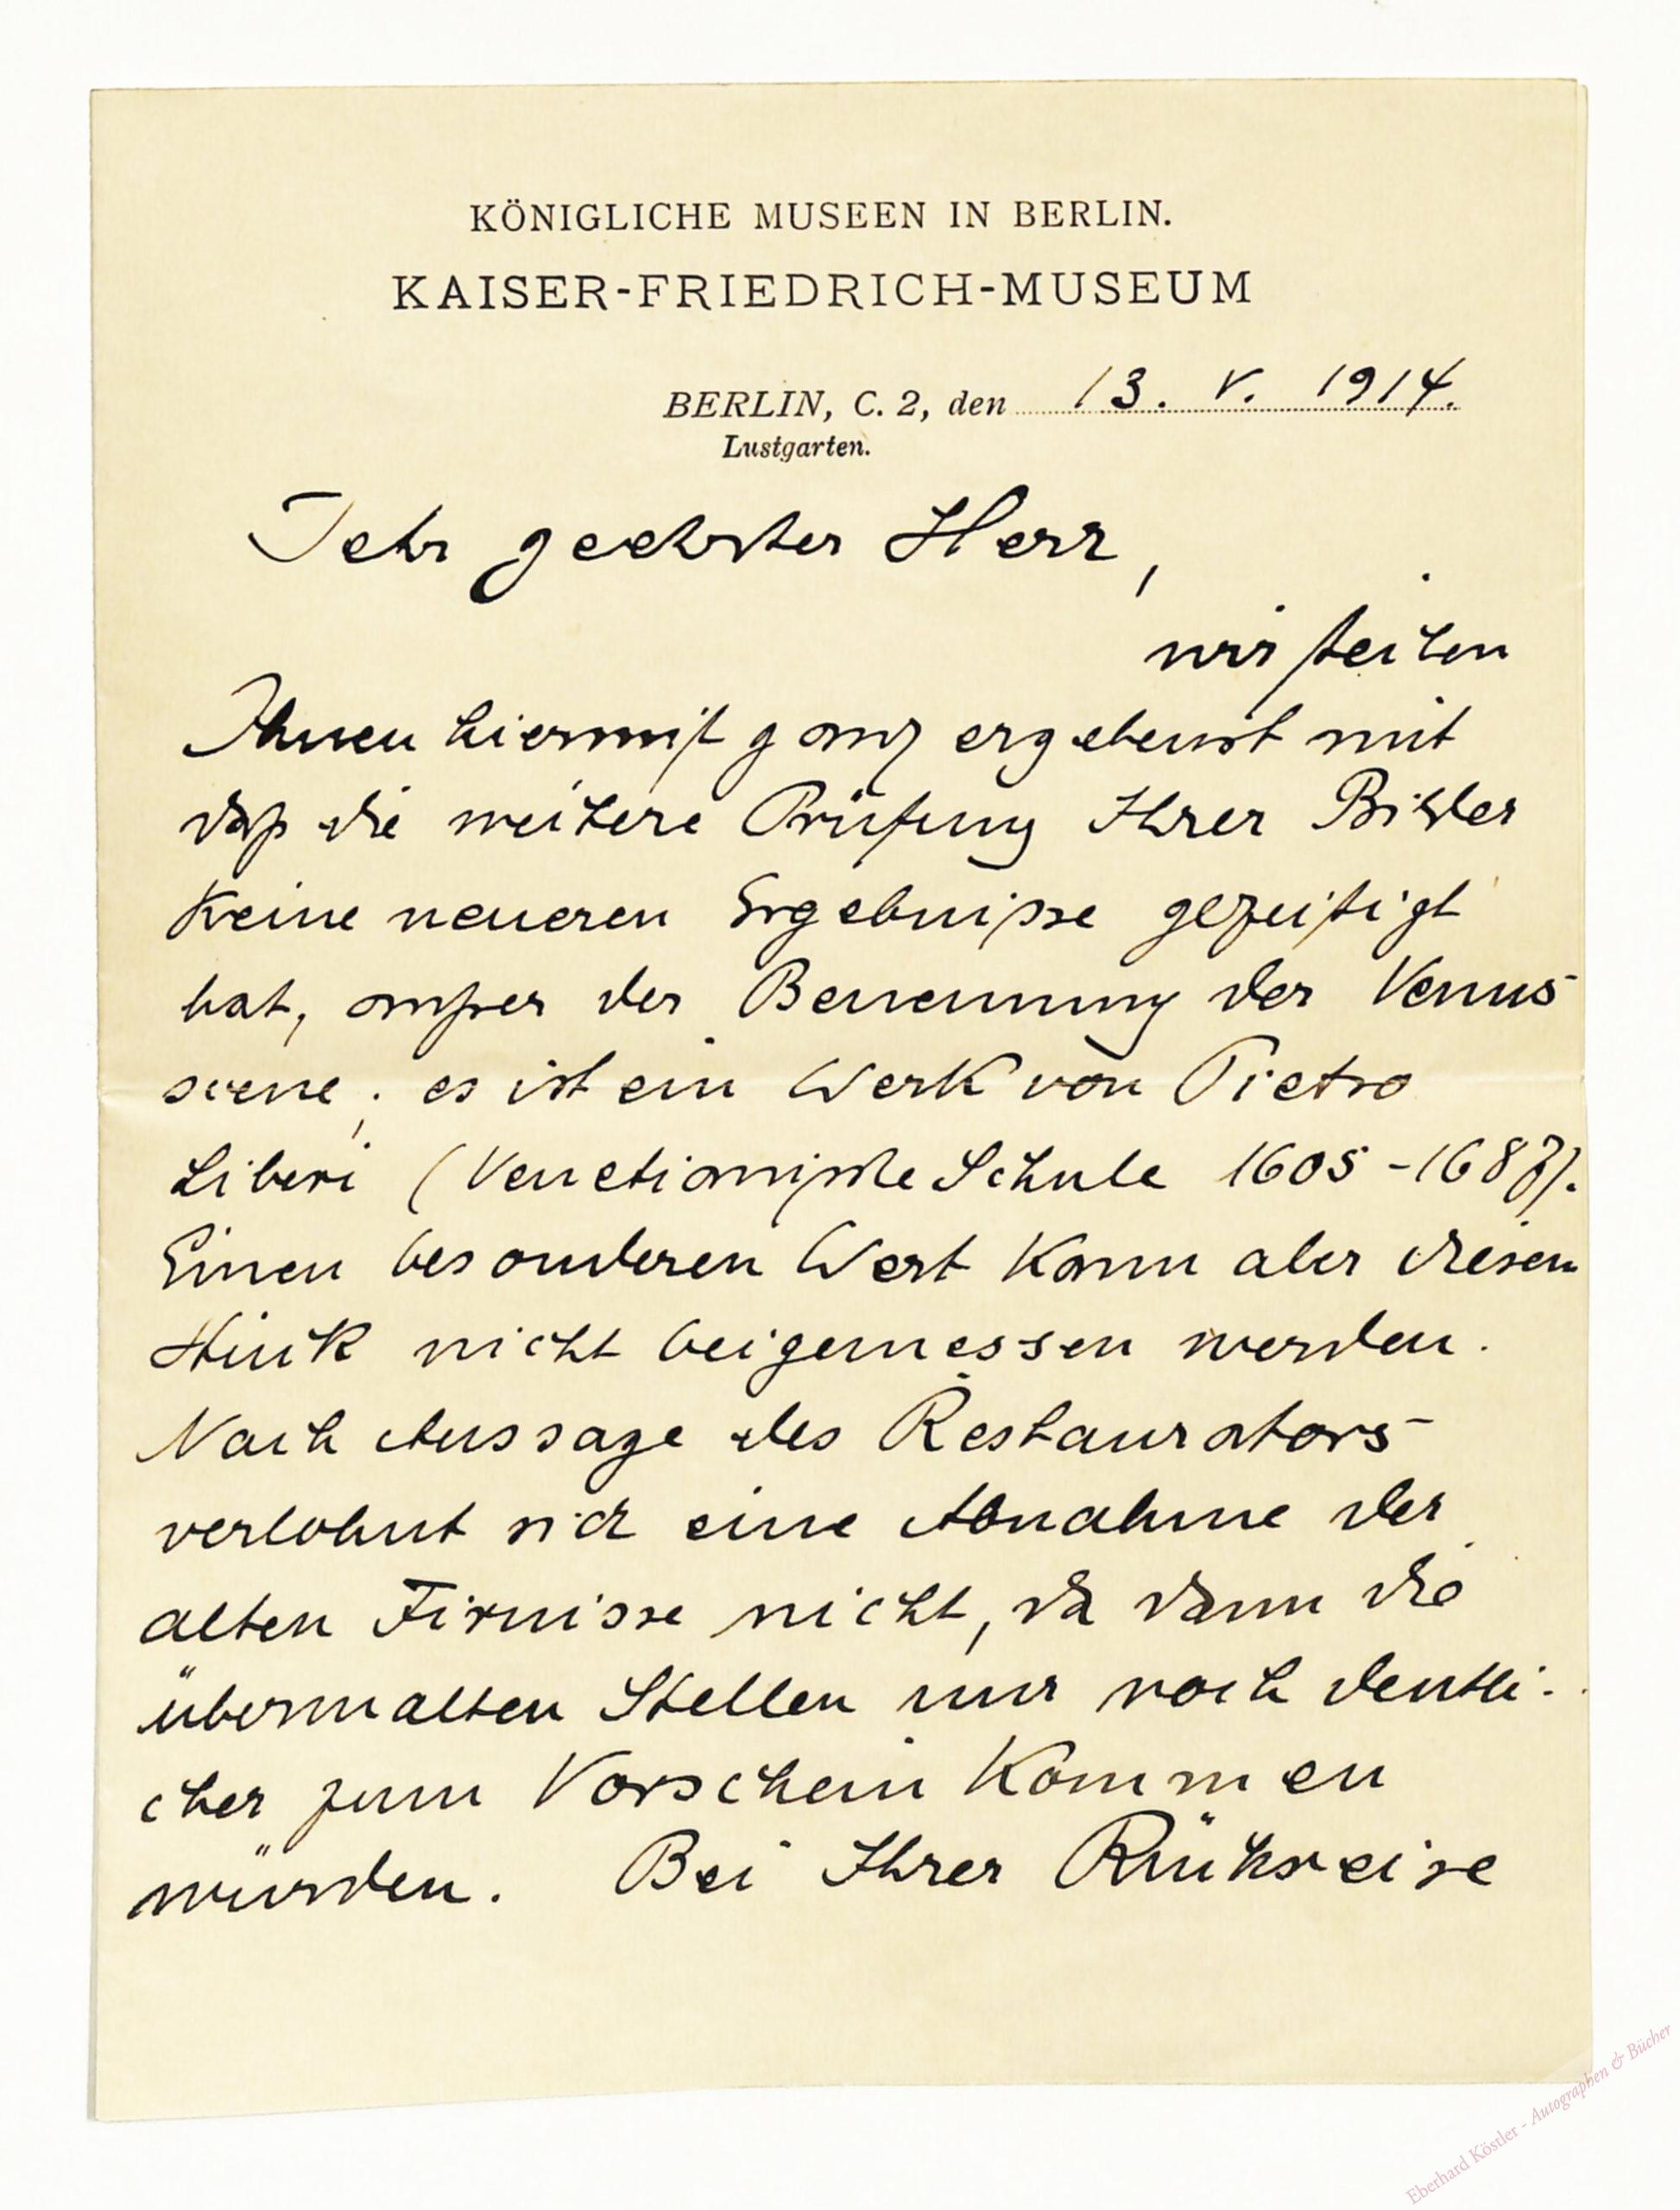 KÖNIGLICHE MUSEEN IN BERLIN.
KAISER-FRIEDRICH-MUSEUM
BERLIN, C. 2, den 13. V. 1914.
Lustgarten.
Sehr geehrter Herr,
wir teilen
Ihnen hiermit ganz ergebenst mit
daß die weitere Prüfung Ihrer Bilder
keine neueren Ergebnisse gezeitigt
hat, außer der Benennung der Venus-
scene; es ist ein Werk von Pietro
Liberi (Venetianische Schule 1605-1687).
Einen besonderen Wert kann aber diesem
Stück nicht beigemessen werden.
Nach Aussage des Restaurators
verlohnt sich eine Abnahme der
alten Firnisse nicht, da dann die
übermalten Stellen nur noch deutli-
cher zum Vorschein kommen
würden. Bei Ihrer Rückreise
Eberhard Köstler - Autographen & Bücher